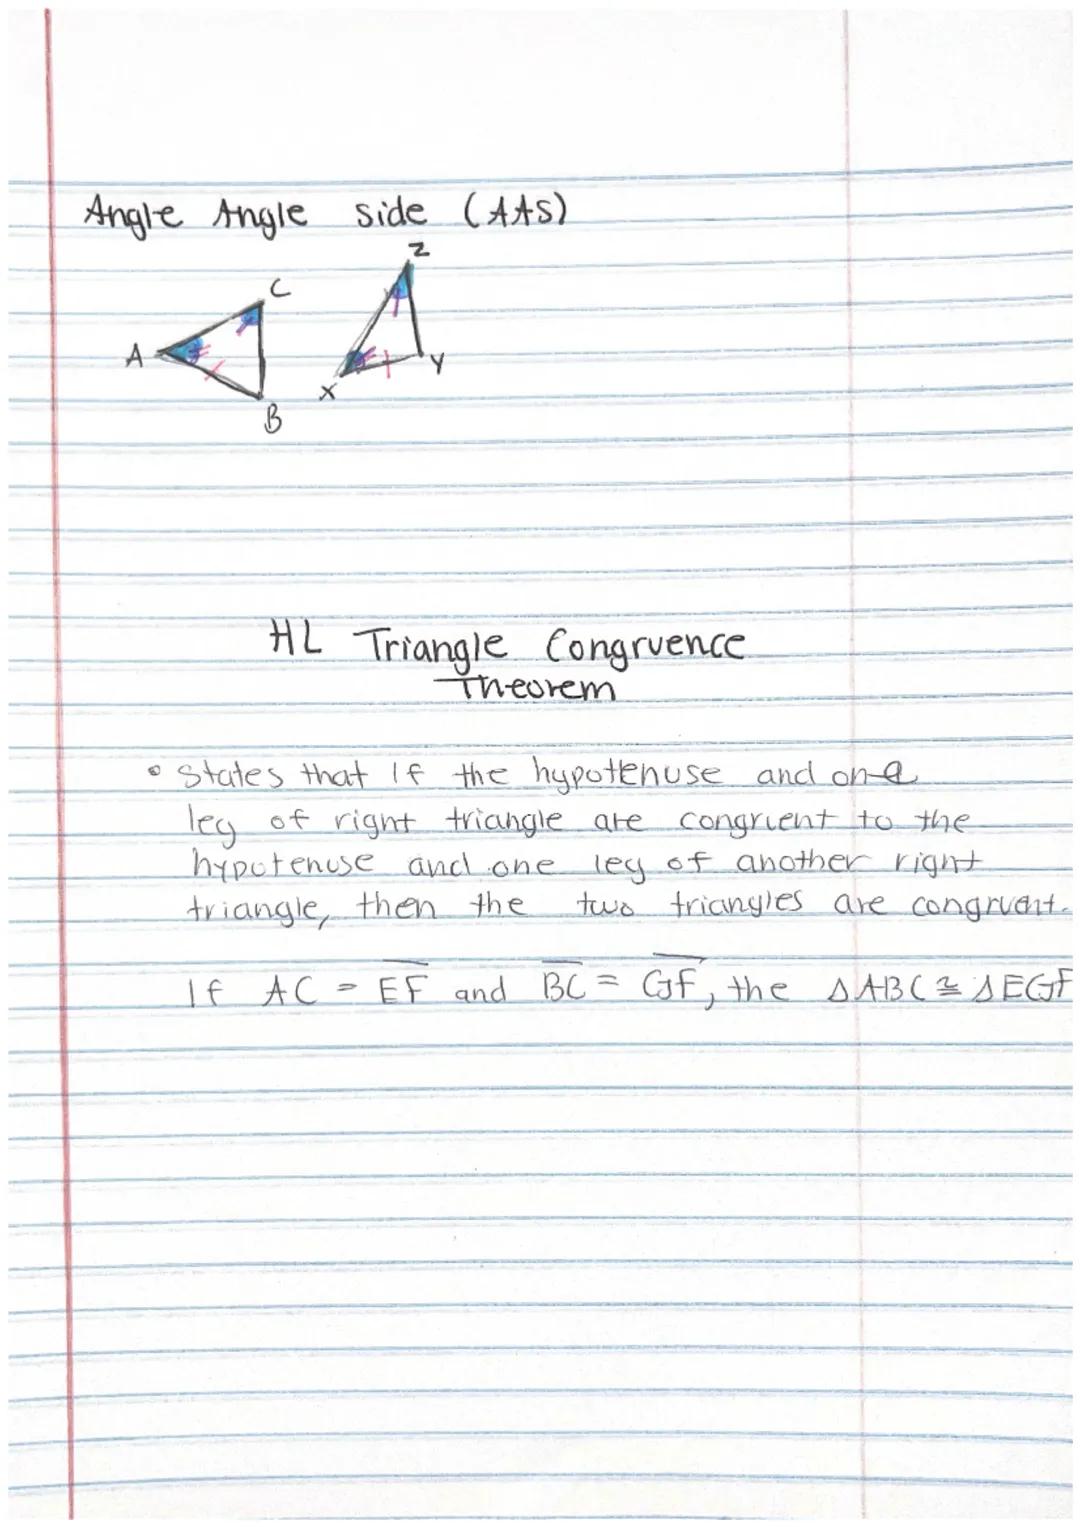 Angle Angle side (AAS)
Z
C
A
Y
X
B
HL Triangle Congruence
Theorem
• states that If the hypotenuse and one
leg of right triangle are congruent to the
hypotenuse and one leg of another right
triangle, then the two triangles are congruent.
If AC = E̅F̅ and B̅C̅ = G̅F̅, the △ABC ≅ △EGF